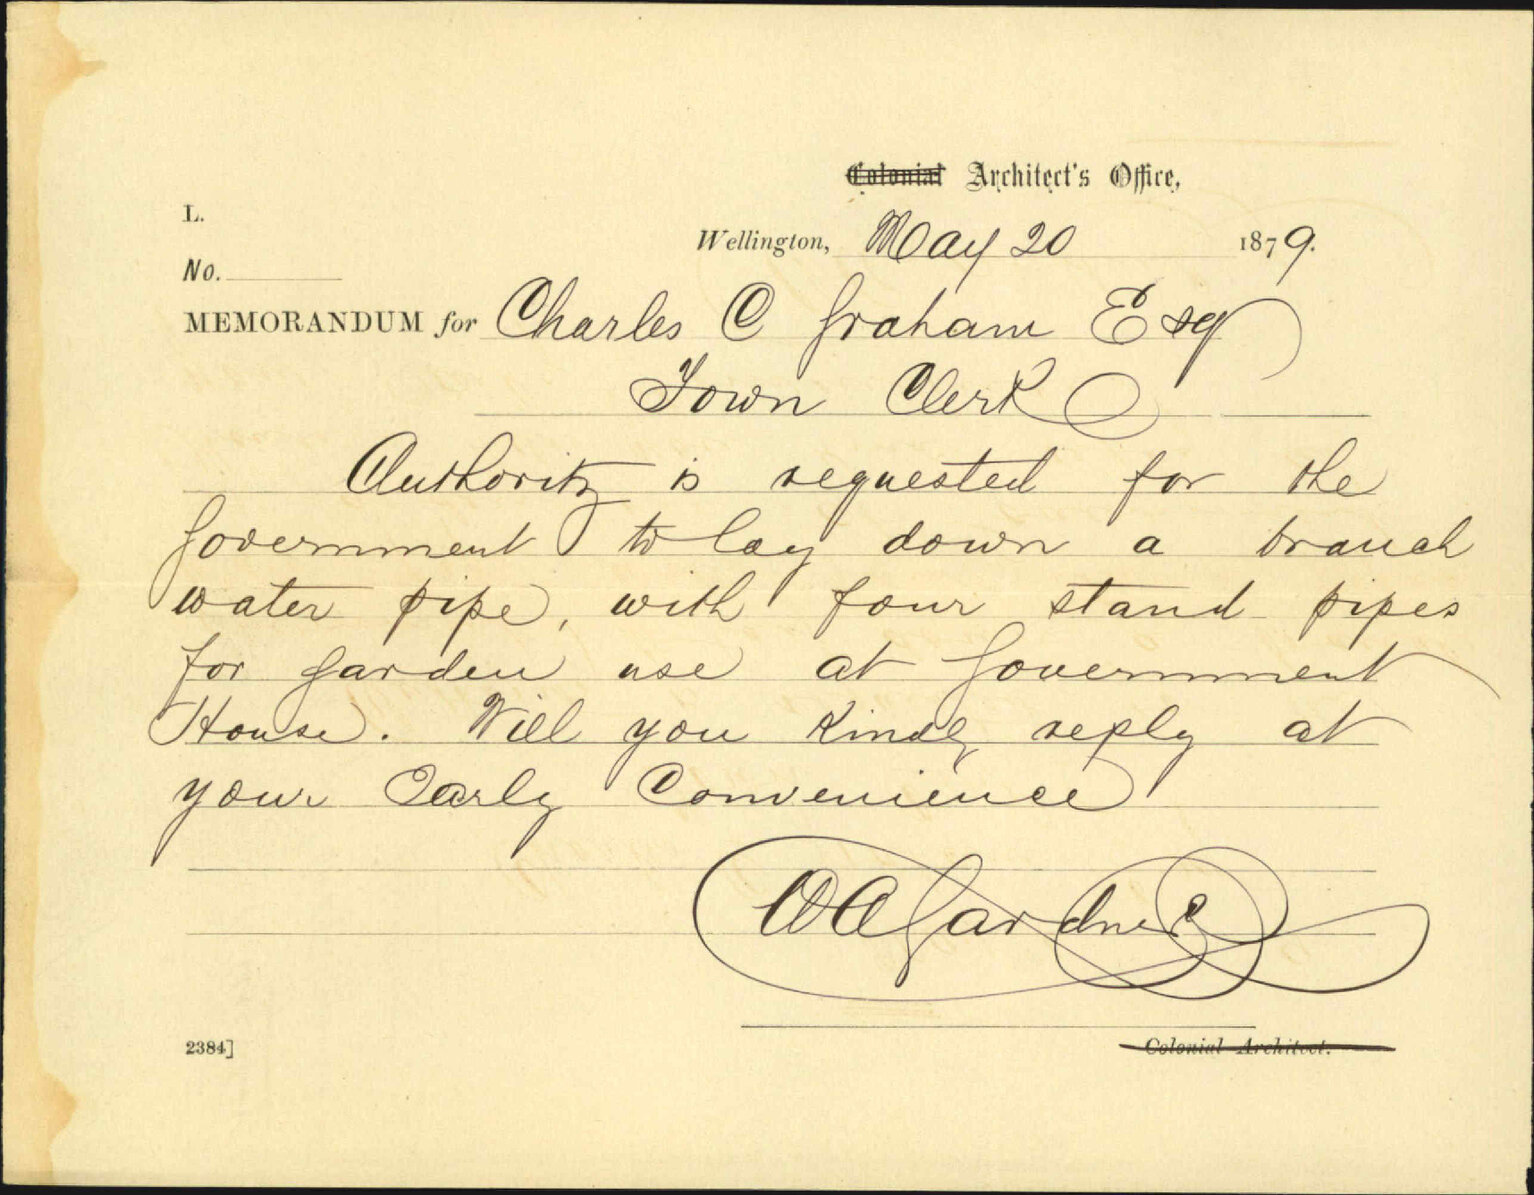 Colonial Architect's Office,
L.
Wellington, May 20 1879.
No.
MEMORANDUM for Charles C Graham Esq
Town Clerk
Authority is requested for the
Government to lay down a branch
water pipe, with four stand pipes
for garden use at Government
House. Will you Kindly reply at
your Early Convenience
W A Gardner
2384]
Colonial Architect.